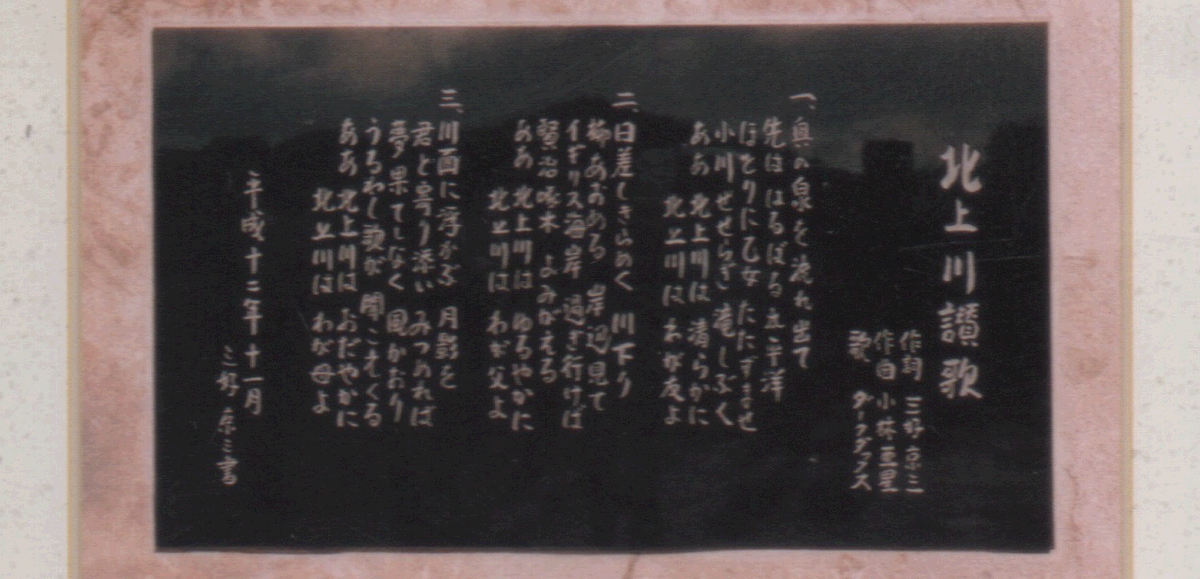 北上川讃歌
作詞 三好京三
作曲 小林亜星
歌 ダークダックス
一、奥の泉を流れ出て
先は はるばる 太平洋
ほとりに乙女 たたずませ
小川せせらぎ 滝しぶく
ああ 北上川は 清らかに
北上川は わが友よ
二、日差しきらめく 川下り
柳あおめる 岸辺見て
イギリス海岸 過ぎ行けば
賢治啄木 よみがえる
ああ 北上川は ゆるやかに
北上川は わが父よ
三、川面に浮かぶ 月影を
君と寄り添い みつめれば
夢果てしなく 風かおり
うるわし歌が 聞こえくる
ああ 北上川は おだやかに
北上川は わが母よ
平成十二年十一月
三好京三書